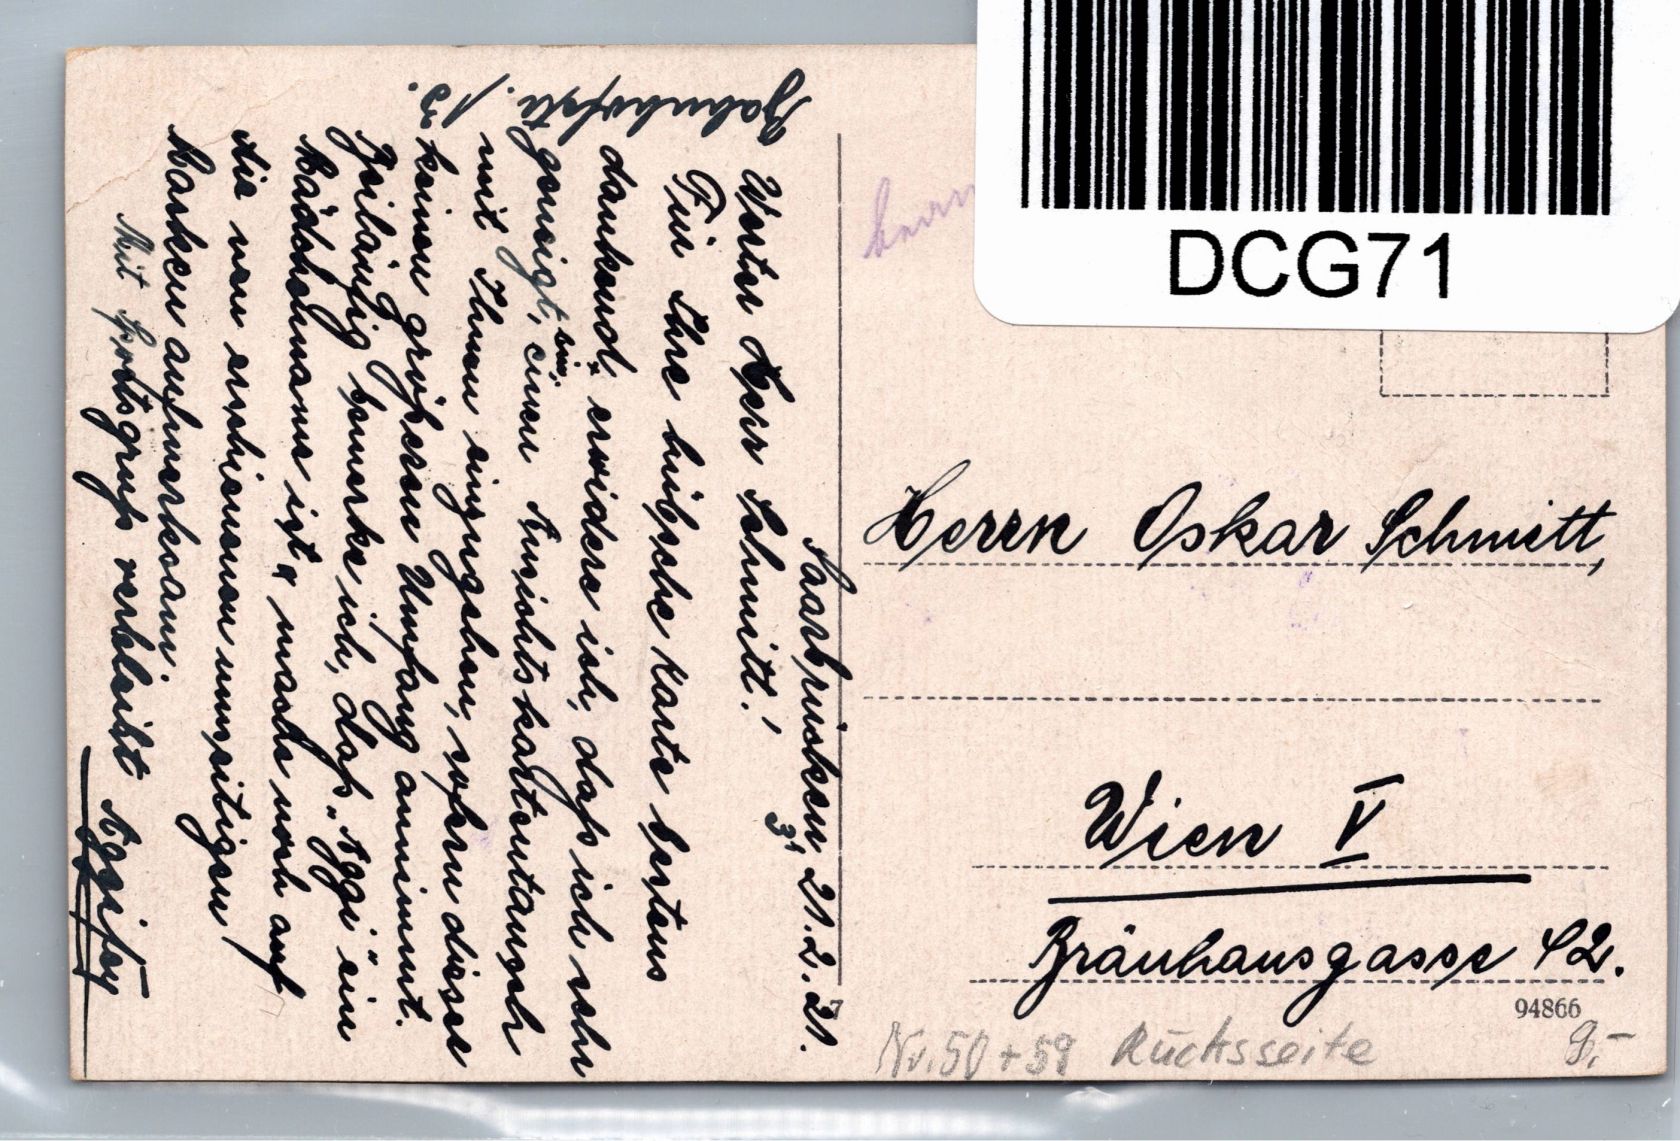 DCG71
Saarbrücken, 21.2.21.
Bahnhofstr. 13.
Werter Herr Schmitt!
Für Ihre hübsche Karte bestens
dankend, erwidere ich, daß ich sehr
geneigt, bin, einen Ansichtskartentausch
mit Ihnen einzugehen, sofern dieser
keinen größeren Umfang annimmt.
Beiläufig bemerke ich, daß „Aggi" ein
Mädchenname ist, mache noch auf
die neu erschienenen
Marken aufmerksam.
Mit Sportsgruß verbleibt
Herrn Oskar Schmitt,
Wien V
Bräuhausgasse 42.
94866
Nr. 50 + 59 Rücksseite
9,-